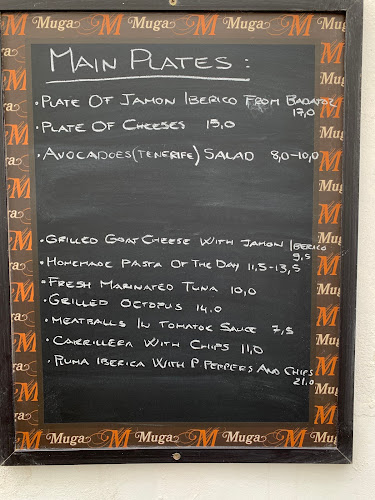 Muga M Muga M Muga M Muga
MAIN PLATES:
• PLATE OF JAMON IBERICO FROM BADAJOZ
17,0
• PLATE OF CHEESES 15,0
• AVOCADOES (TENERIFE) SALAD 8,0-10,0
• GRILLED GOAT CHEESE WITH JAMON IBERICO
9,5
• HOMEMADE PASTA OF THE DAY 11,5-13,5
• FRESH MARINATED TUNA 10,0
• GRILLED OCTOPUS 14.0
• MEATBALLS IN TOMATOE SAUCE 7,5
• CARRILLERA WITH CHIPS 11,0
• PLUMA IBERICA WITH P PEPPERS AND CHIPS
21,0
M Muga M Muga M Muga M Muga